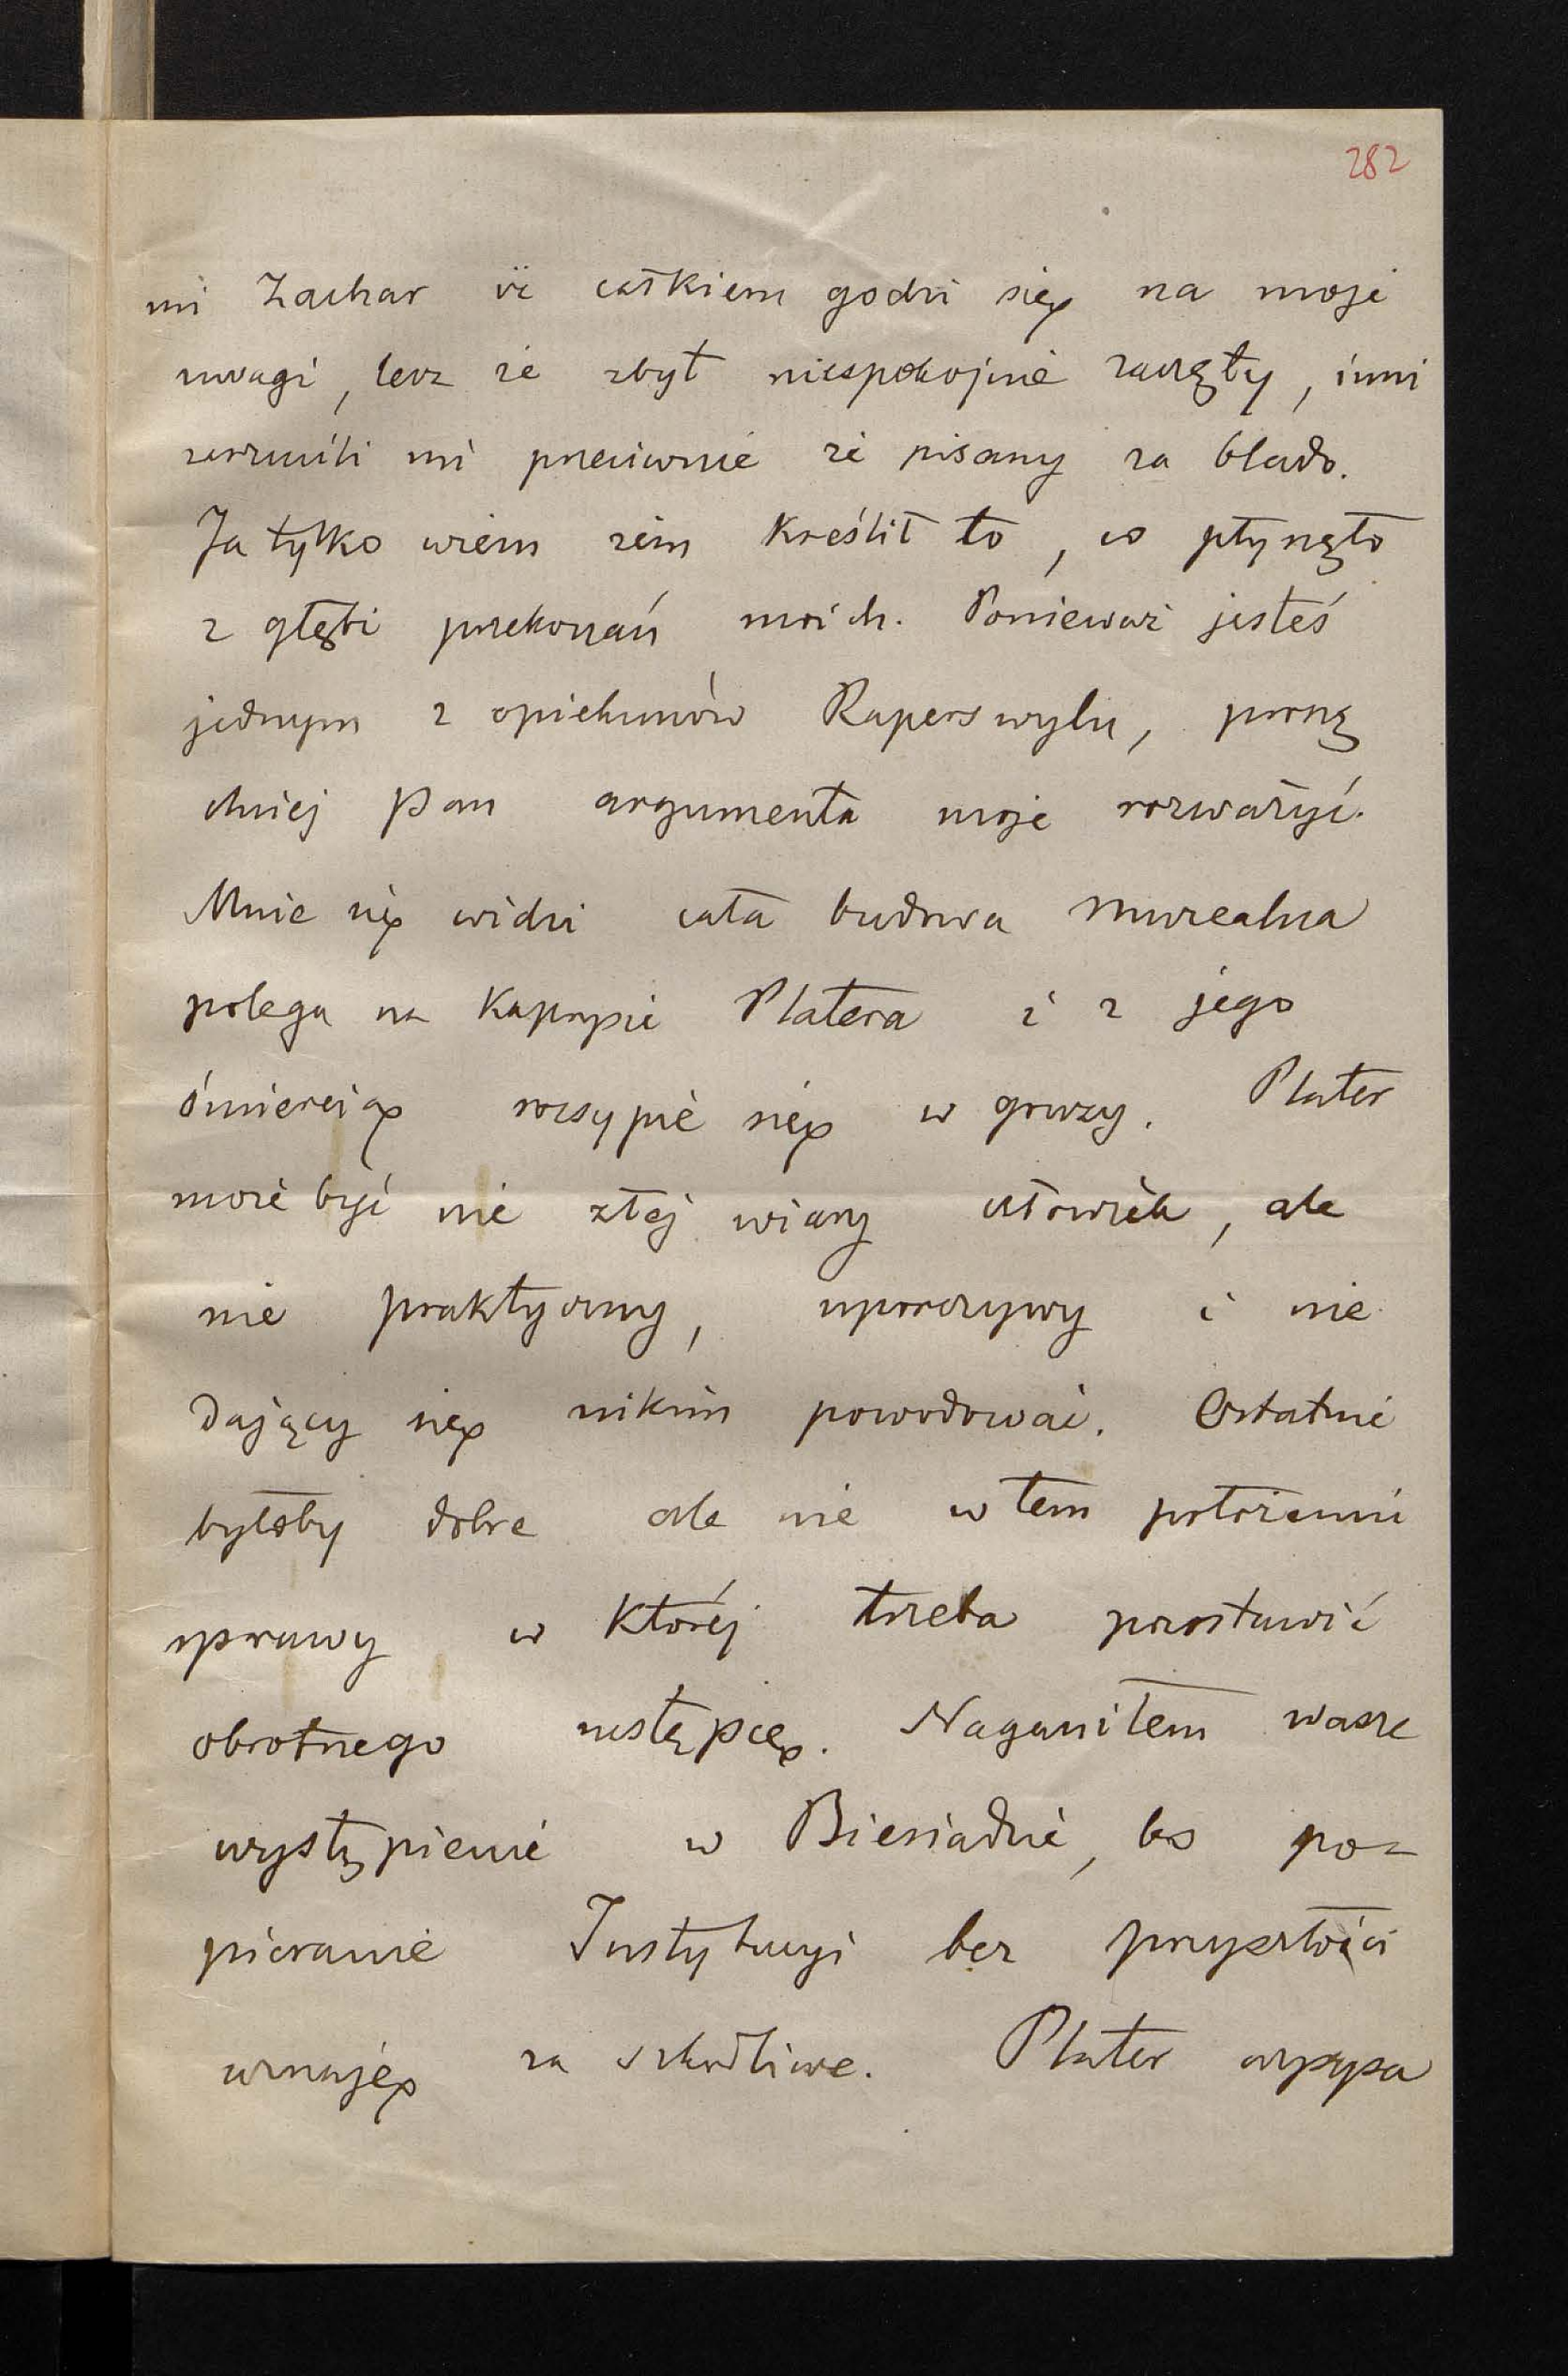 282
mi Zachar iż całkiem godzi się na moje
uwagi, lecz że zbyt niespokojnie zaczęty, inni
zarzucili mi przeciwnie że pisany za blado.
Ja tylko wiem żem kreślił to, co płynęło
z głębi przekonań moich. Ponieważ jesteś
jednym z opiekunów Raperswylu, proszę
chciej Pan argumenta moje rozważyć.
Mnie się widzi cała budowa muzealna
polega na kaprysie Platera i z jego
śmiercią rozsypie się w gruzy. Plater
może być nie złej wiary człowiek, ale
nie praktyczny, uporczywy i nie
dający się nikim powodować. Ostatnie
byłoby dobre ale nie w tem położeniu
sprawy w której trzeba pozostawić
obrotnego następcę. Naganiłem wasze
wystąpienie w Biesiadzie, bo po=
pieranie Instytucyi bez przyszłości
uznaję za szkodliwe. Plater